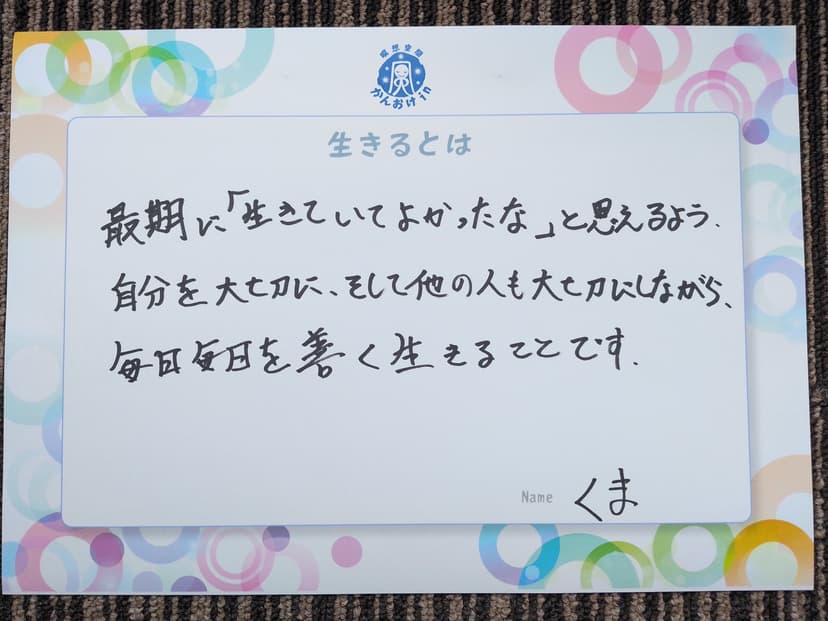 瞑想空間
かんおけin
生きるとは
最期に「生きていてよかったな」と思えるよう.
自分を大切に、そして他の人も大切にしながら、
毎日毎日を善く生きることです.
Name くま